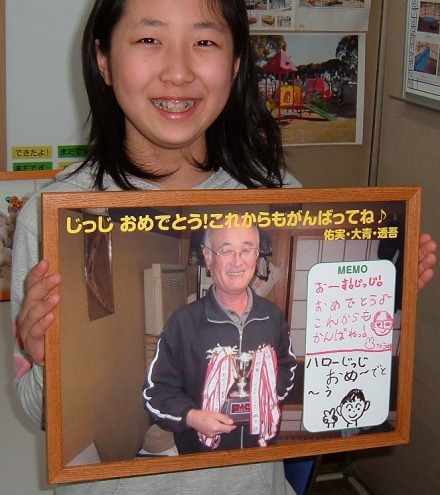 できたよ！
まだです
じっじ おめでとう！これからもがんばってね♪
佑実・大青・透吾
MEMO
おーい！じっじ！
おめでとうよ
これからも
がんばれっ!
ハローじっじ
おめ〜でと
〜う